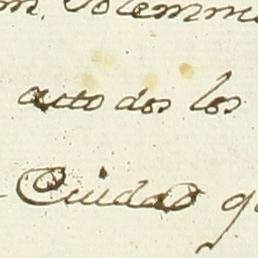 Solemn
auto dos los
Ciudad q